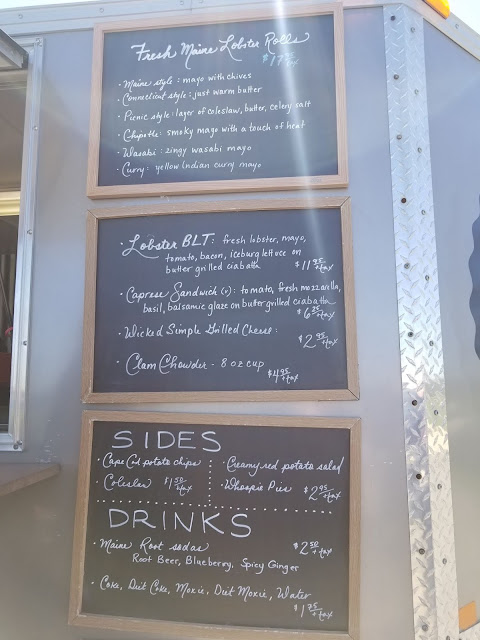 Fresh Maine Lobster Rolls
· Maine style: mayo with chives
· Connecticut style: just warm butter
· Picnic style: layer of coleslaw, butter, celery salt
· Chipotle: smoky mayo with a touch of heat
· Wasabi: zingy wasabi mayo
· Curry: yellow Indian curry mayo
· Lobster BLT: fresh lobster, mayo,
tomato, bacon, iceburg lettuce on
butter grilled ciabatta $11.95 +tax
· Caprese Sandwich (v): tomato, fresh mozzarilla,
basil, balsamic glaze on butter grilled ciabatta
$6.25 +tax
· Wicked Simple Grilled Cheese:
$2.95 +tax
· Clam Chowder - 8 oz cup
$4.95 +tax
SIDES
· Cape Cod potato chips
· Coleslaw $1.50 +tax
· Creamy red potato salad
· Whoopie Pies $2.95 +tax
DRINKS
· Maine Root sodas $2.50 +tax
Root Beer, Blueberry, Spicy Ginger
· Coke, Diet Coke, Moxie, Diet Moxie, Water
$1.75 +tax